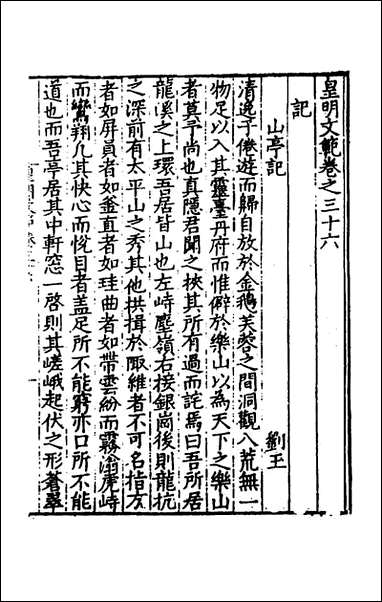 皇明文範卷之三十六
記
山亭記 劉玉
清逸子倦遊而歸自放於金鵝芙蓉之間洞觀八荒無一
物足以入其靈臺丹府而惟僻於樂山以為天下之樂山
者莫予尚也真隱君聞之挾其所有過而詫焉曰吾所居
龍溪之上環吾居皆山也左峙塵嶺右接銀崗後則龍抗
之深前有太平山之秀其他拱揖於陬維者不可名指方
者如屏員者如釜直者如珪曲者如帶雲紛而霧滃虎峙
而鸞翔凡其快心而悅目者盖足所不能窮亦口所不能
道也而吾亭居其中軒窓一啓則其嵯峨起伏之形蒼翠